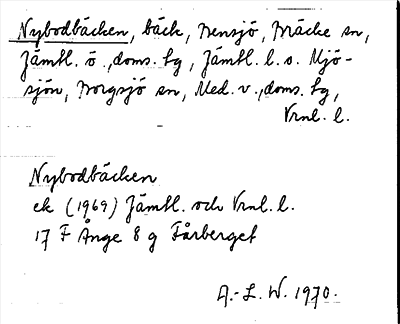 Nybodbäcken, bäck, Nensjö, Bräcke sn,
Jämtl. ö., doms. hg, Jämtl. l. o. Mjö-
sjön, Borgsjö sn, Med. v., doms. hg,
Vrnl. l.
Nybodbäcken
ek (1969) Jämtl. och Vrnl. l.
17 F Ånge 8 g Fårberget
A.-L. W. 1970.